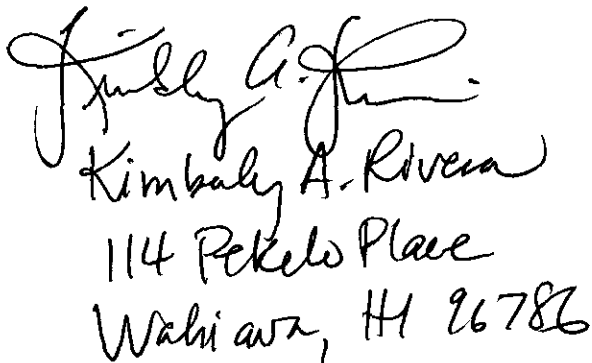 Kimberly A. Rivera
Kimberly A. Rivera
114 Pekelo Place
Wahiawa, HI 96786